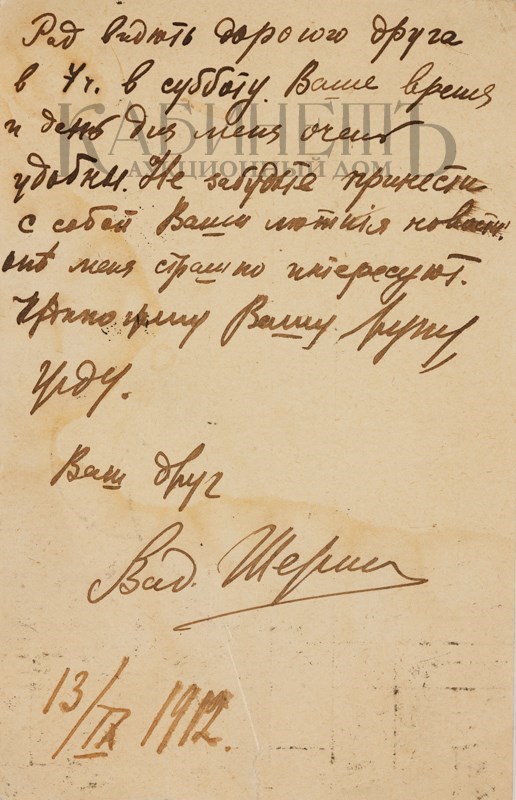 Рад видѣть дорогого друга
в 7 ч. в субботу. Ваше время
и день для меня очень
удобны. Не забудьте принести
с собой Ваши новости:
онѣ меня страшно интересуют.
Вашу руку
жду.
Ваш друг
Вад.
13/IX 1912.
КАБИНЕТЪ
АУКЦИОННЫЙ ДОМ